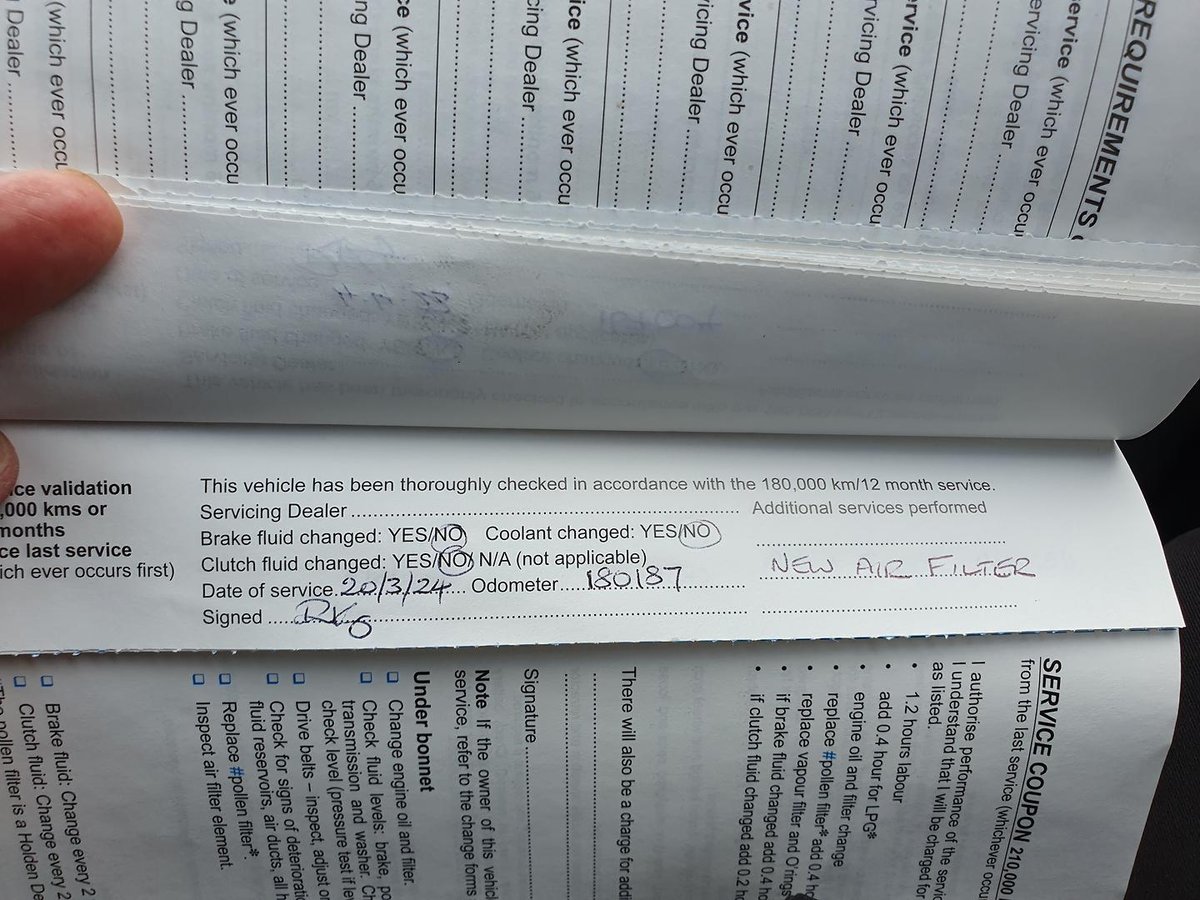 REQUIREMENTS
service (which ever occu
ervicing Dealer
ervice (which ever occu
rvicing Dealer
vice (which ever occu
vicing Dealer
ice (which ever occu
cing Dealer
ce (which ever occu
ing Dealer
e (which ever occu
ng Dealer
(which ever occu
Dealer
ce validation
,000 kms or
months
ce last service
ich ever occurs first)
This vehicle has been thoroughly checked in accordance with the 180,000 km/12 month service.
Servicing Dealer
Additional services performed
Brake fluid changed: YES/NO Coolant changed: YES/NO
Clutch fluid changed: YES/NO/ N/A (not applicable)
NEW AIR FILTER
Date of service 20/3/24 Odometer 180187
Signed
SERVICE COUPON 210,000
from the last service (whichever occu
I authorise performance of the servic
I understand that I will be charged for
as listed.
• 1.2 hours labour
• add 0.4 hour for LPG*
• engine oil and filter change
• replace #pollen filter* add 0.4 ho
• replace vapour filter and O'rings
• if brake fluid changed add 0.4 ho
• if clutch fluid changed add 0.2 h
There will also be a charge for addi
Signature
Note If the owner of this vehicl
service, refer to the change forms
Under bonnet
Change engine oil and filter.
Check fluid levels: brake, po
transmission and washer. Ch
check level (pressure test if le
Drive belts – inspect, adjust or
Check for signs of deterioratio
fluid reservoirs, air ducts, all h
Replace #pollen filter*.
Inspect air filter element.
Brake fluid: Change every 2
Clutch fluid: Change every 2
pollen filter is a Holden De